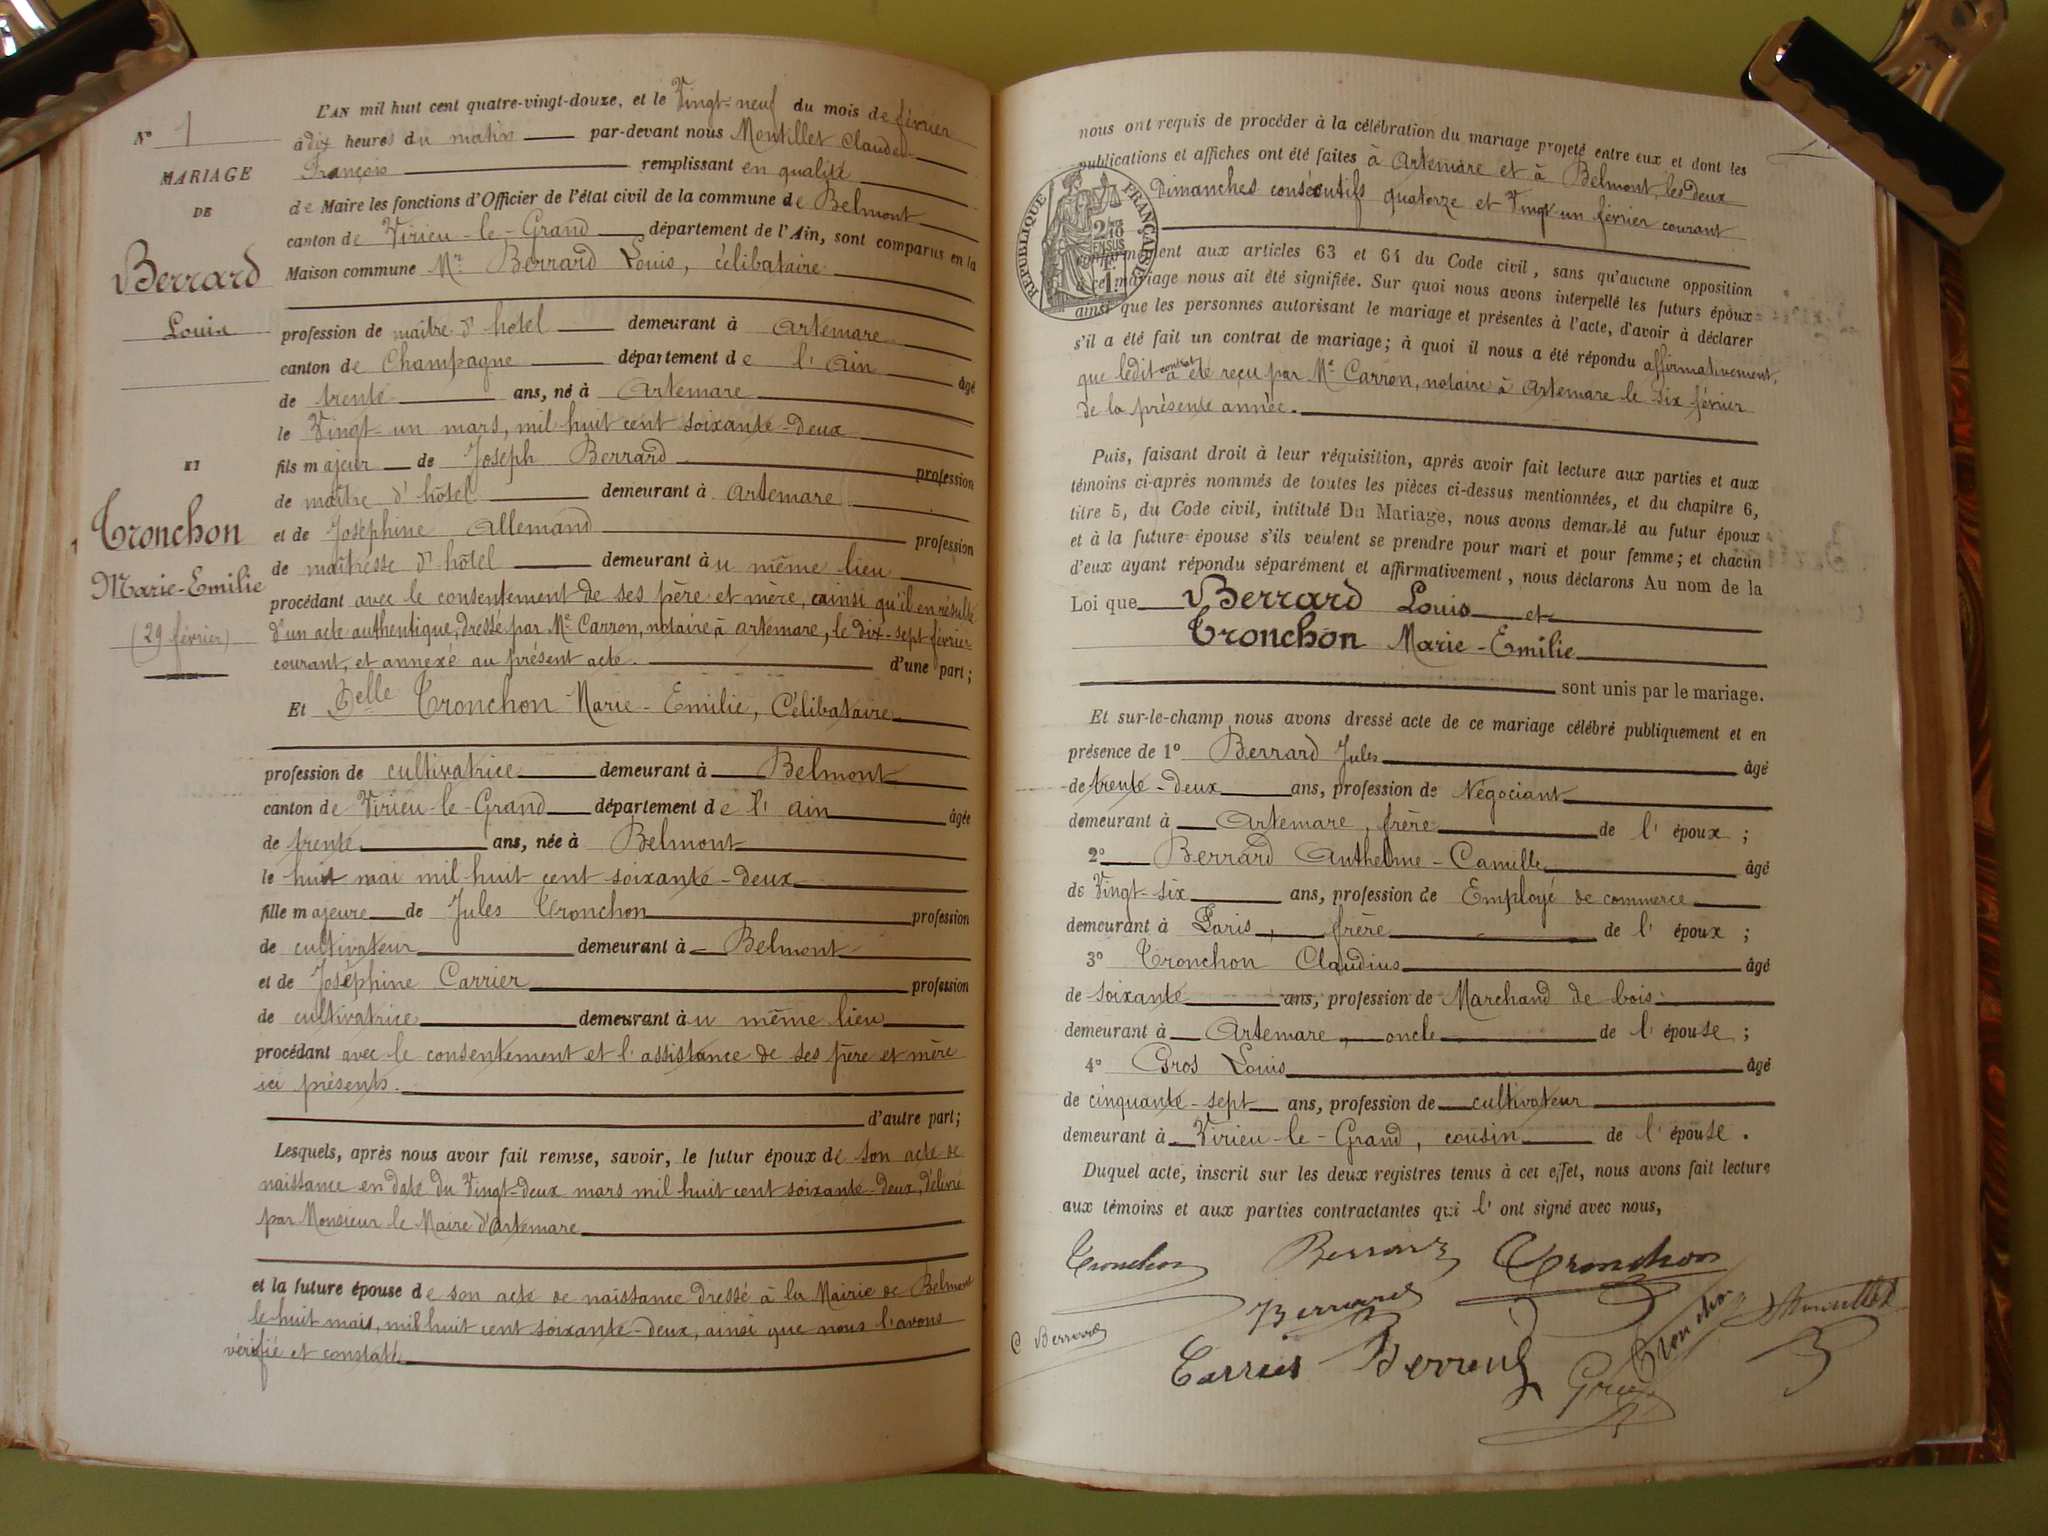 N° 1
MARIAGE
DE
Berrard
Louis
ET
Tronchon
Marie-Emilie
(29 février)
L'AN mil huit cent quatre-vingt-douze, et le Vingt-neuf du mois de février
à dix heures du matin par-devant nous Montillet Claude
François remplissant en qualité
de Maire les fonctions d'Officier de l'état civil de la commune de Belmont
canton de Virieu-le-Grand département de l'Ain, sont comparus en la
Maison commune Mr Berrard Louis, célibataire
profession de maître d'hôtel demeurant à Artemare
canton de Champagne département de l'Ain âgé
de trente ans, né à Artemare
le Vingt-un mars, mil huit cent soixante-deux
fils majeur de Joséph Berrard profession
de maître d'hôtel demeurant à Artemare
et de Joséphine Allemand profession
de maîtresse d'hôtel demeurant au même lieu
procédant avec le consentement de ses père et mère, ainsi qu'il en résulte
d'un acte authentique, dressé par Me Carron, notaire à Artemare, le dix-sept février
courant, et annexé au présent acte. d'une part;
Et Delle Tronchon Marie-Emilie, Célibataire
profession de cultivatrice demeurant à Belmont
canton de Virieu-le-Grand département de l'Ain âgée
de trente ans, née à Belmont
le huit mai mil huit cent soixante-deux
fille majeure de Jules Tronchon profession
de cultivateur demeurant à Belmont
et de Joséphine Carrier profession
de cultivatrice demeurant au même lieu
procédant avec le consentement et l'assistance de ses père et mère
ici présents.
d'autre part;
Lesquels, après nous avoir fait remise, savoir, le futur époux de son acte de
naissance en date du Vingt-deux mars mil huit cent soixante-deux, délivré
par Monsieur le Maire d'Artemare
et la future épouse de son acte de naissance dressé à la Mairie de Belmont
le huit mai, mil huit cent soixante-deux, ainsi que nous l'avons
vérifié et constaté
nous ont requis de procéder à la célébration du mariage projeté entre eux et dont les
publications et affiches ont été faites à Artemare et à Belmont, les deux
Dimanches consécutifs quatorze et Vingt-un février courant
RÉPUBLIQUE FRANÇAISE
2/10
EN SUS
1 F.
conformément aux articles 63 et 64 du Code civil, sans qu'aucune opposition
à ce mariage nous ait été signifiée. Sur quoi nous avons interpellé les futurs époux
ainsi que les personnes autorisant le mariage et présentes à l'acte, d'avoir à déclarer
s'il a été fait un contrat de mariage; à quoi il nous a été répondu affirmativement,
que ledit contrat a été reçu par Me Carron, notaire à Artemare le six février
de la présente année.
Puis, faisant droit à leur réquisition, après avoir fait lecture aux parties et aux
témoins ci-après nommés de toutes les pièces ci-dessus mentionnées, et du chapitre 6,
titre 5, du Code civil, intitulé Du Mariage, nous avons demandé au futur époux
et à la future épouse s'ils veulent se prendre pour mari et pour femme; et chacun
d'eux ayant répondu séparément et affirmativement, nous déclarons Au nom de la
Loi que Berrard Louis et
Tronchon Marie-Emilie
sont unis par le mariage.
Et sur-le-champ nous avons dressé acte de ce mariage célébré publiquement et en
présence de 1° Berrard Jules âgé
de trente-deux ans, profession de Négociant
demeurant à Artemare, frère de l'époux;
2° Berrard Anthelme-Camille âgé
de Vingt-six ans, profession de Employé de commerce
demeurant à Paris, frère de l'époux;
3° Tronchon Claudius âgé
de soixante ans, profession de Marchand de bois
demeurant à Artemare, oncle de l'épouse;
4° Gros Louis âgé
de cinquante-sept ans, profession de cultivateur
demeurant à Virieu-le-Grand, cousin de l'épouse.
Duquel acte, inscrit sur les deux registres tenus à cet effet, nous avons fait lecture
aux témoins et aux parties contractantes qui l'ont signé avec nous,
Tronchon Berrard Tronchon
Berrard Tronchon Montillet
C Berrard
Carrier Berrard Gros